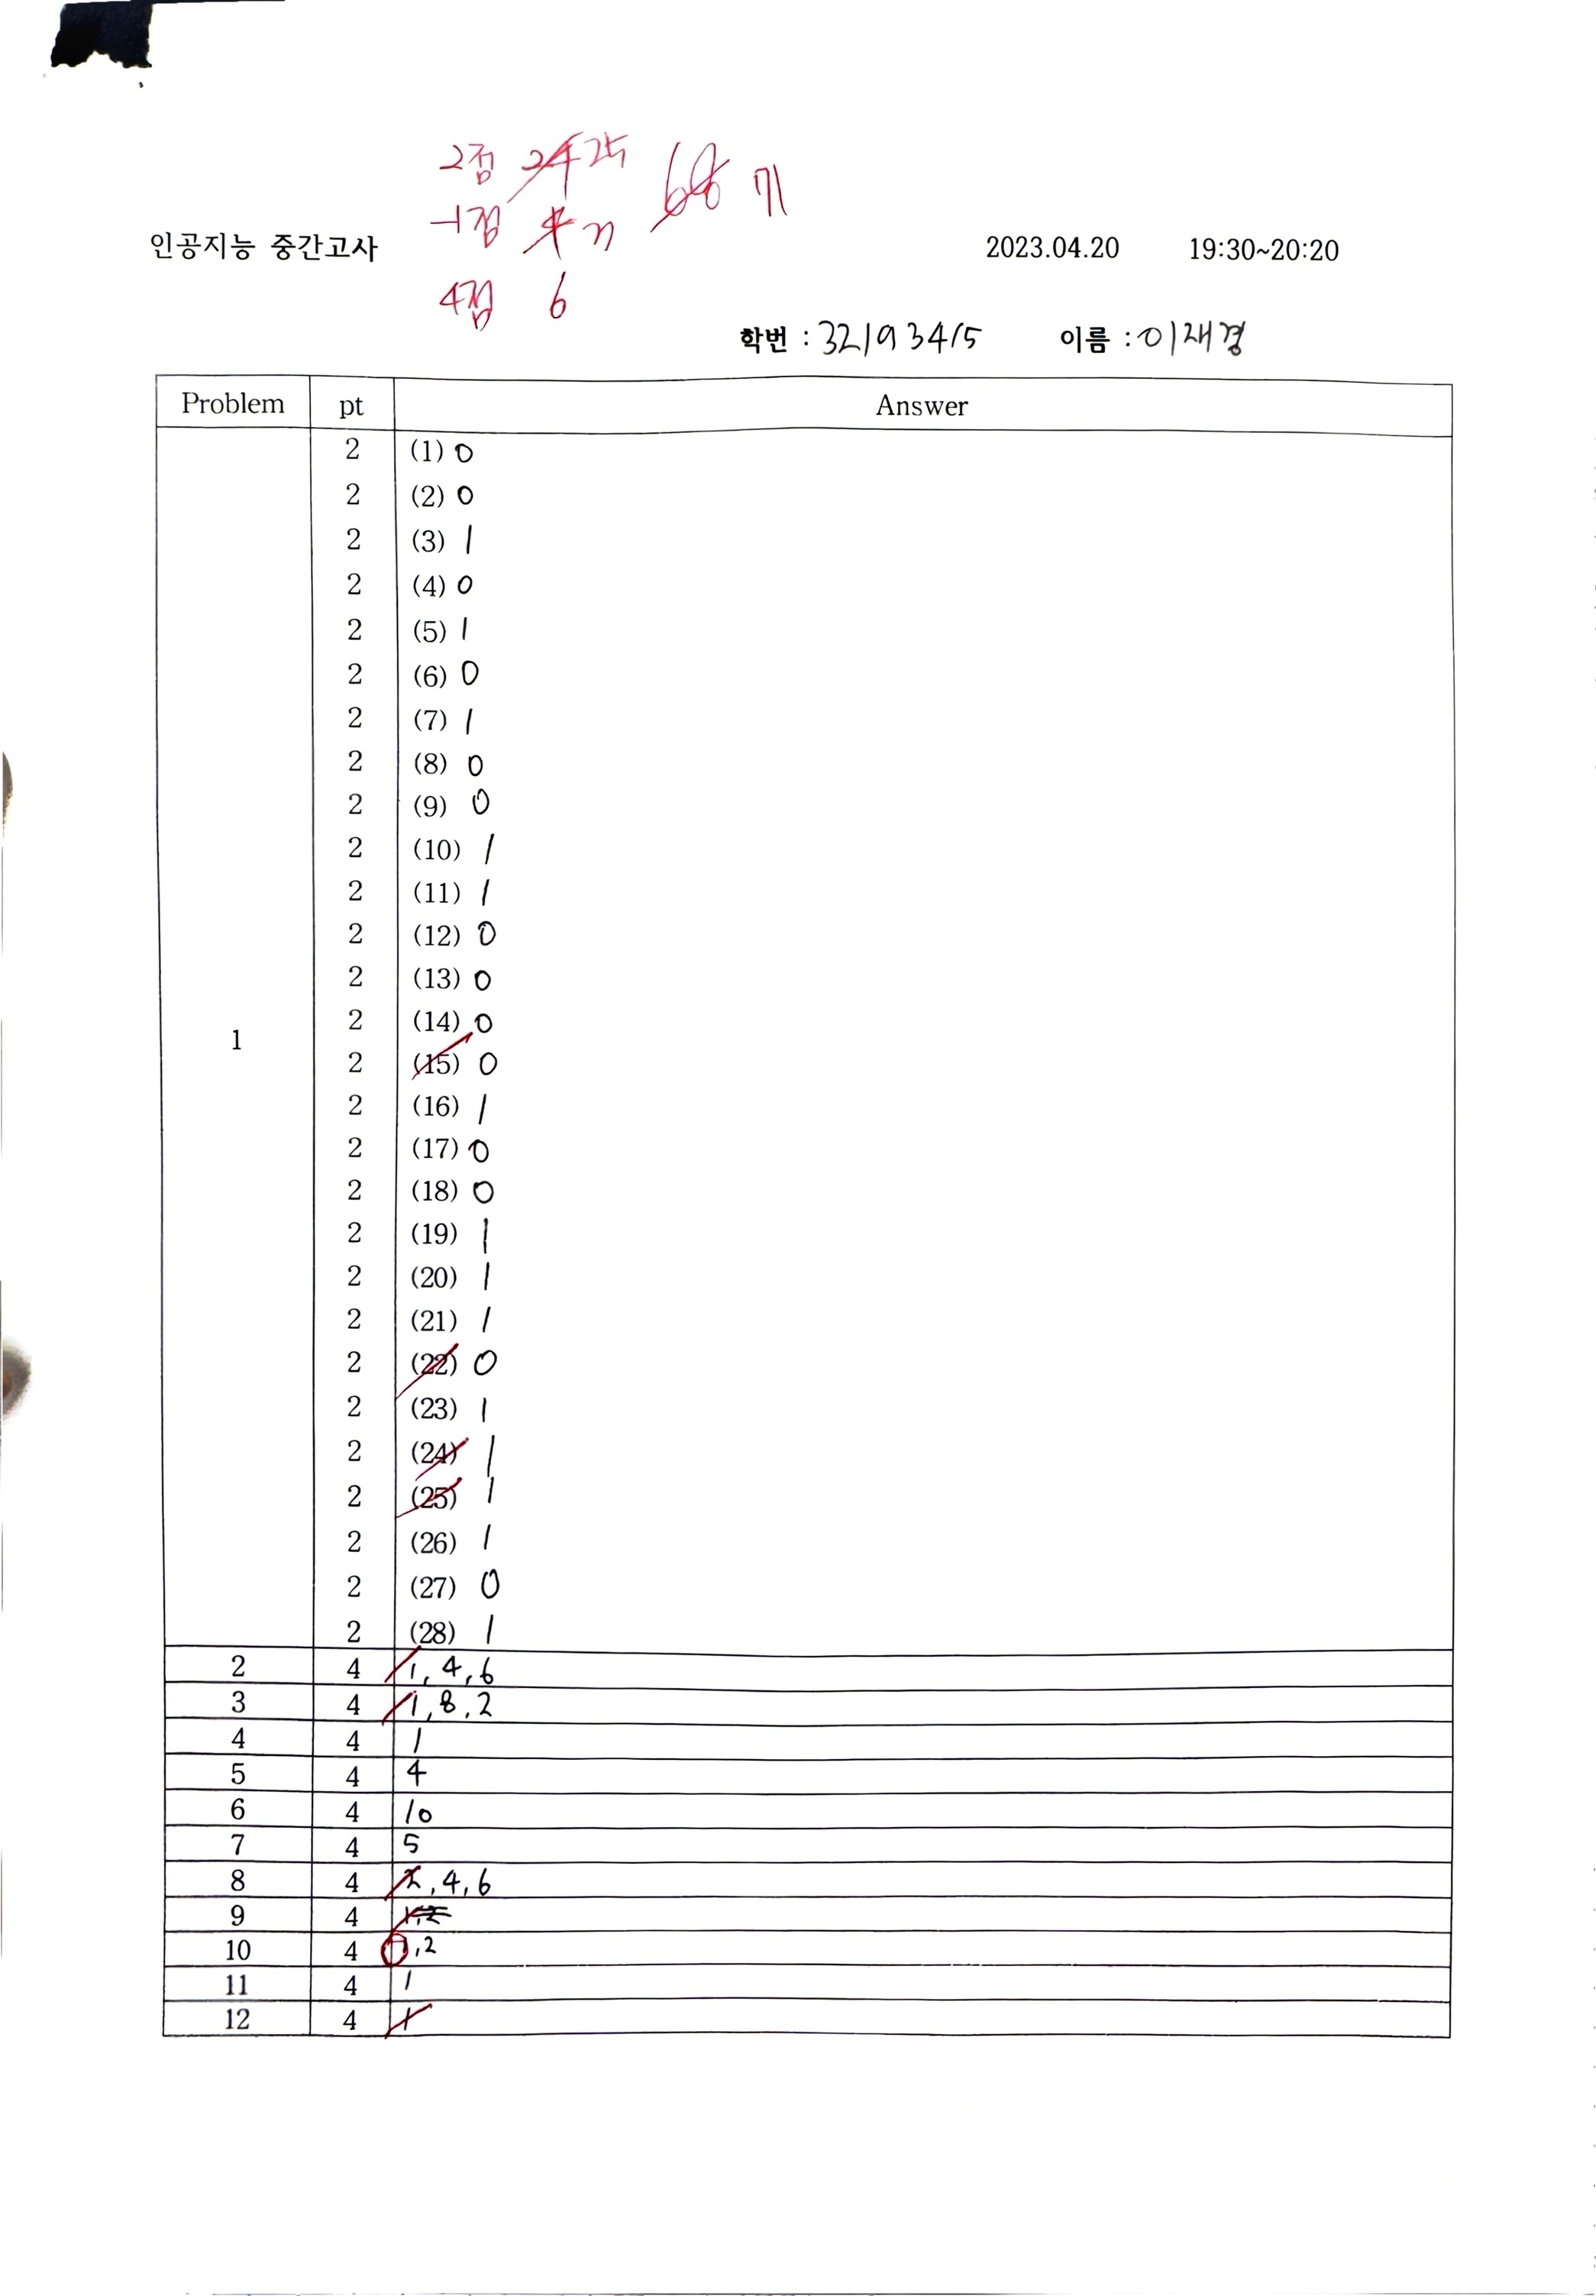 2점 24 25 68 71
-1점 4 3
4점 6
인공지능 중간고사 2023.04.20 19:30~20:20
학번 : 32193415 이름 : 이재경
Problem pt Answer
2 (1) 0
2 (2) 0
2 (3) 1
2 (4) 0
2 (5) 1
2 (6) 0
2 (7) 1
2 (8) 0
2 (9) 0
2 (10) 1
2 (11) 1
2 (12) 0
2 (13) 0
2 (14) 0
1
2 (15) 0
2 (16) 1
2 (17) 0
2 (18) 0
2 (19) 1
2 (20) 1
2 (21) 1
2 (22) 0
2 (23) 1
2 (24) 1
2 (25) 1
2 (26) 1
2 (27) 0
2 (28) 1
2 4 1, 4, 6
3 4 1, 8, 2
4 4 1
5 4 4
6 4 10
7 4 5
8 4 2, 4, 6
9 4 1, 2
10 4 1, 2
11 4 1
12 4 1